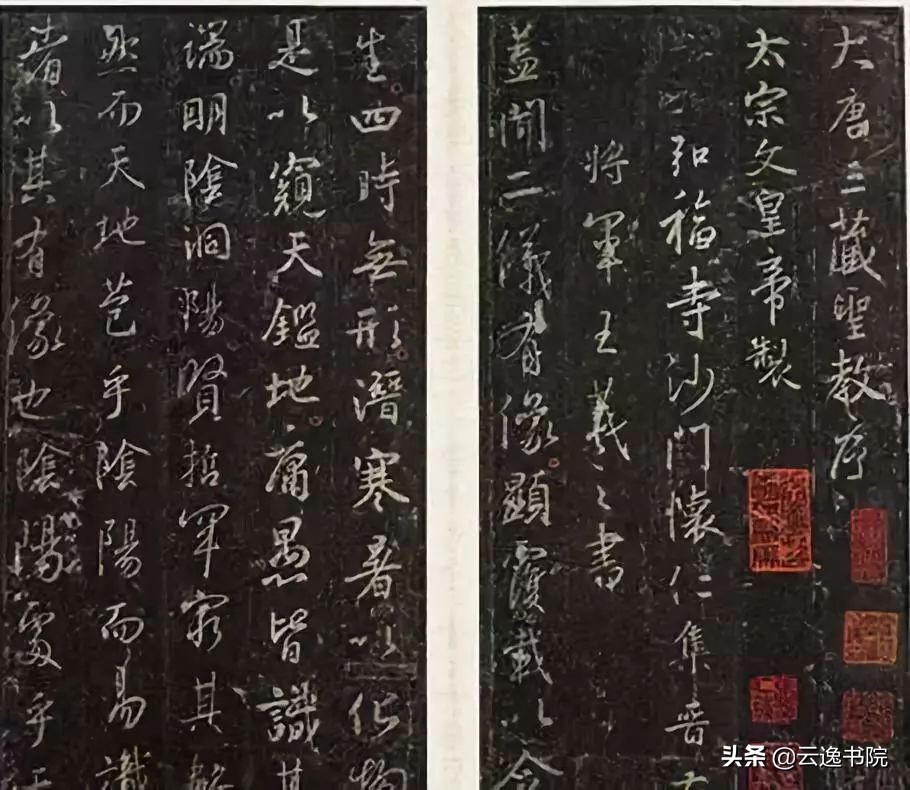 大唐三藏聖教序
太宗文皇帝製
弘福寺沙門懷仁集晉
將軍王羲之書
蓋聞二儀有像顯覆載以含
生四時無形潛寒暑以化物
是以窺天鑑地庸愚皆識其
端明陰洞陽賢哲罕窮其數
然而天地苞乎陰陽而易識
者以其有像也陰陽處乎
头条 @云逸书院